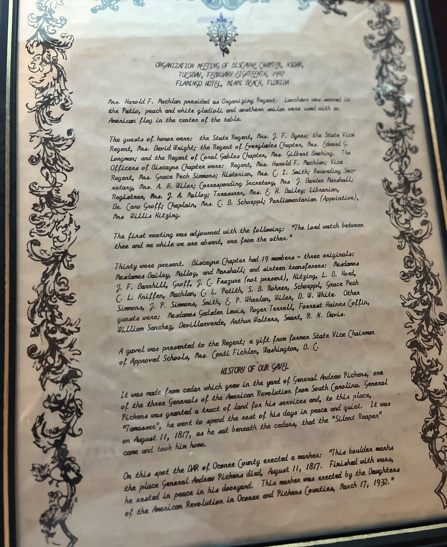 ORGANIZATION MEETING OF BISCAYNE CHAPTER, NSDAR,
TUESDAY, FEBRUARY EIGHTEENTH, 1947
FLAMINGO HOTEL, MIAMI BEACH, FLORIDA
Mrs. Harold F. Machlan presided as Organizing Regent. Luncheon was served in
the Patio, peach and white gladioli and southern smilax were used with an
American flag in the center of the table.
The guests of honor were: the State Regent, Mrs. J. F. Byrne; the State Vice
Regent, Mrs. David Wright; the Regent of Everglades Chapter, Mrs. Edward G.
Longman; and the Regent of Coral Gables Chapter, Mrs. Gilbert. The
Officers of Biscayne Chapter were: Regent, Mrs. Harold F. Machlan; Vice
Regent, Mrs. Grace Pech Simmons; Historian, Mrs. C. I. Smith; Recording Sec-
retary, Mrs. A. H. Wiler; Corresponding Secretary, Mrs. J. Marshall;
Registrar, Mrs. J. A. Malloy; Treasurer, Mrs. E. H. Bailey; Librarian,
Dr. Caro Groff; Chaplain, Mrs. C. B. Schoeppl; Parliamentarian (Appointive),
Mrs. Willis Hitzing.
The first meeting was adjourned with the following: "The Lord watch between
thee and me while we are absent, one from the other."
Thirty were present. Biscayne Chapter had 19 members - three originals:
Mesdames Bailey, Malloy, and Marshall; and sixteen transfers: Mesdames
J. F. Barnhill, Groff, J. C. Frazure (not present), Hitzing, L. B. Hard,
C. L. Kniffen, Machlan, C. L. Petith, S. B. Rohrer, Schoeppl, Grace Pech
Simmons, J. P. Simmons, Smith, E. P. Wheelan, Wiler, D. W. White. Other
guests were: Mesdames Gadsden Lewis, Roger Terrell, Forrest Haines Coffin,
William Sanchez, Devillarverde, Arthur Walters, Smart, R. H. Davis.
A gavel was presented to the Regent; a gift from former State Vice Chairman
of Approved Schools, Mrs. Conti Fichler, Washington, D. C.
HISTORY OF OUR GAVEL
It was made from cedar which grew in the yard of General Andrew Pickens, one
of the three Generals of the American Revolution from South Carolina. General
Pickens was granted a tract of land for his services and, to this place,
"Tamassee", he went to spend the rest of his days in peace and quiet. It was
on August 11, 1817, as he sat beneath the cedars, that the "Silent Reaper"
came and took him home.
On this spot the DAR of Oconee County erected a marker: "This boulder marks
the place General Andrew Pickens died, August 11, 1817. Finished with wars,
he rested in peace in his dooryard. This marker was erected by the Daughters
of the American Revolution in Oconee and Pickens Counties, March 17, 1932."